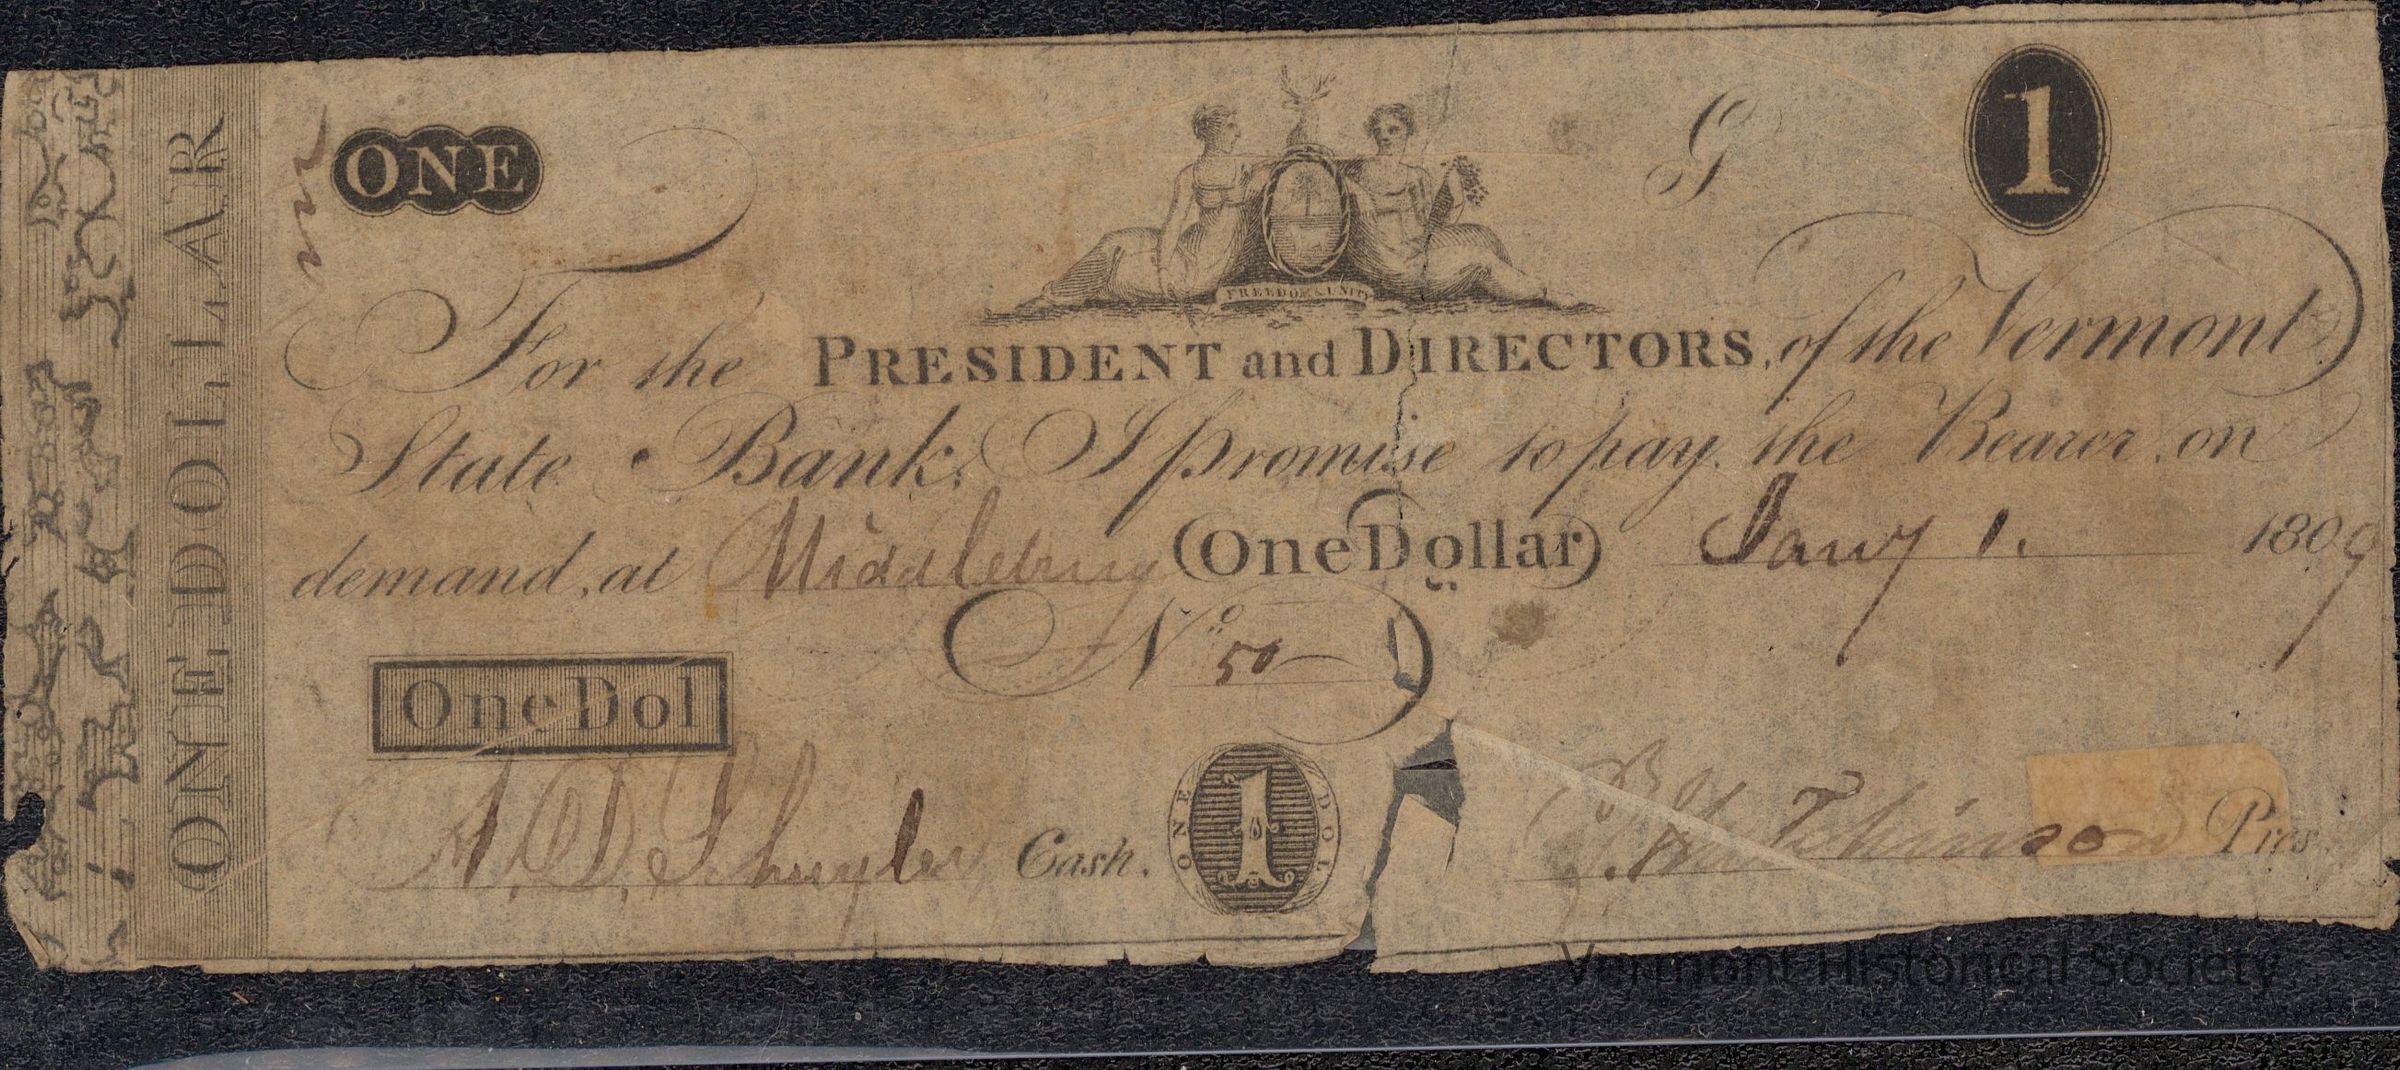 ONE DOLLAR
ONE
G
1
FREEDOM & UNITY
For the PRESIDENT and DIRECTORS, of the Vermont
State Bank, I promise to pay the Bearer, on
demand, at Middlebury (One Dollar) Jany 1. 1809
No 50
One Dol
A. D. Schuyler Cash.
ONE 1 DOL
Hutchinson Pres
Vermont Historical Society